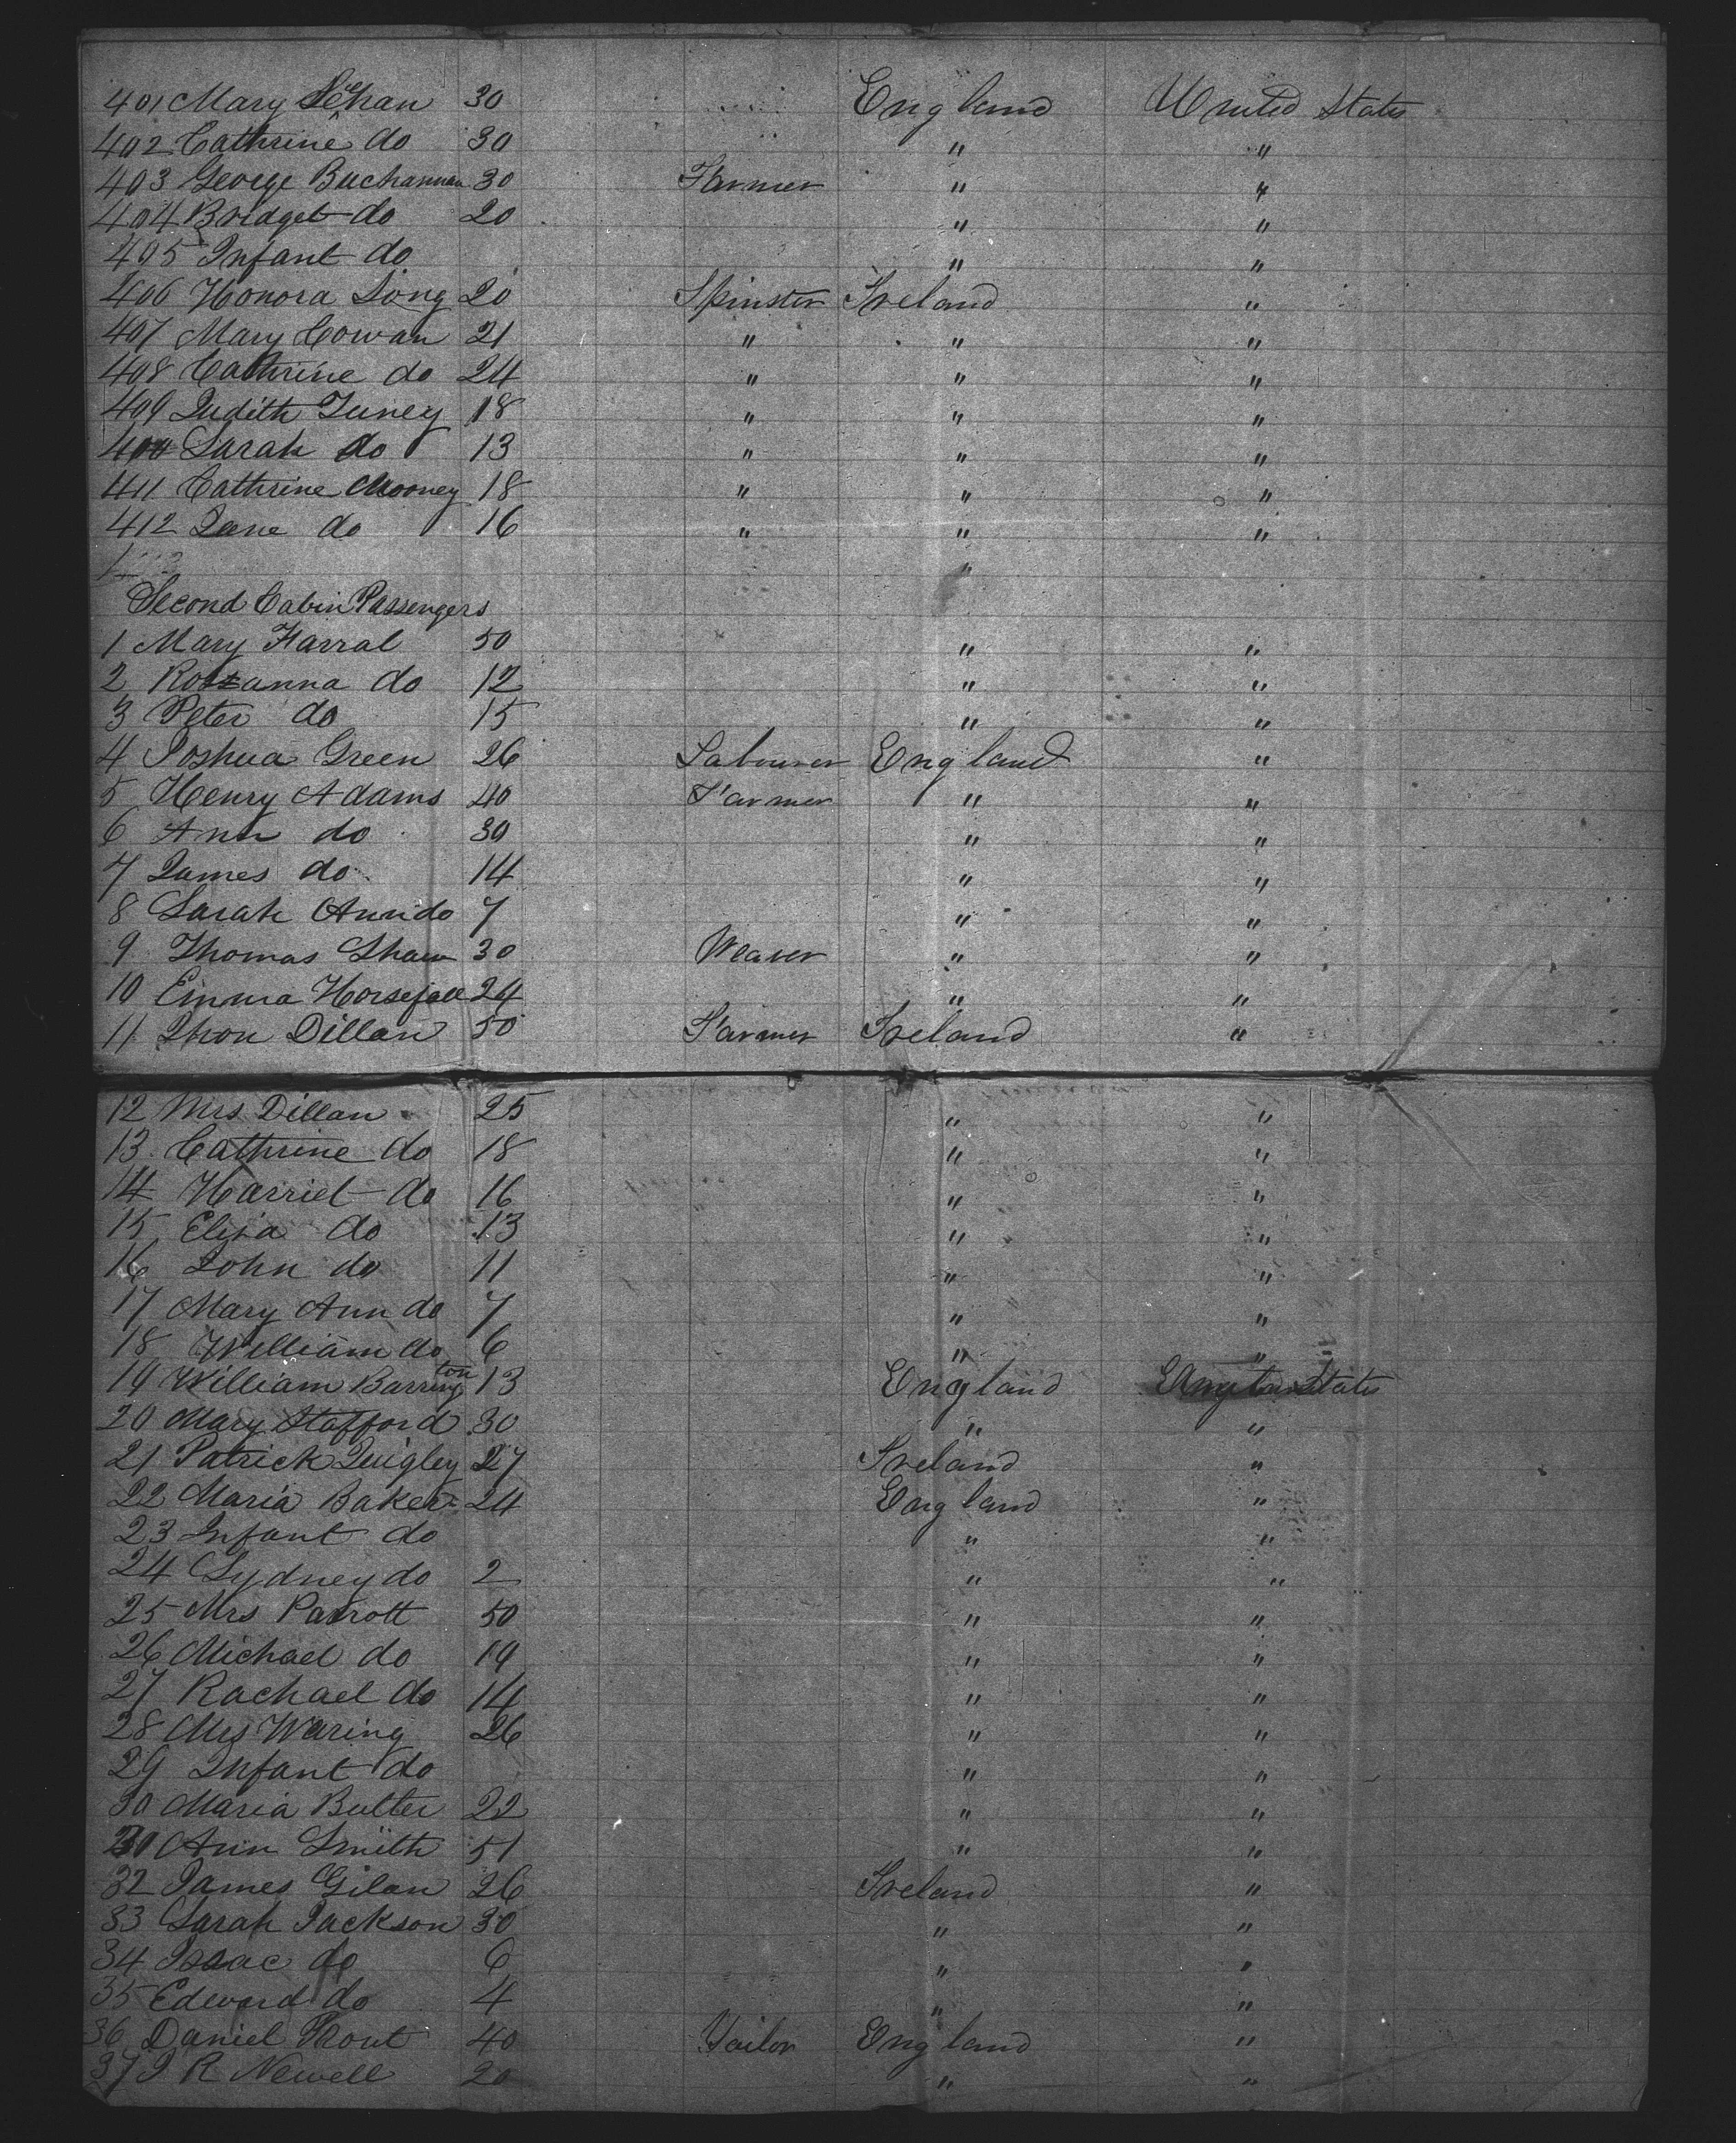 401 Mary Lehan 30 England United States
402 Cathrine do 30 " "
403 George Buchannan 30 Farmer " "
404 Bridget do 20 " "
405 Infant do " "
406 Honora Long 20 Spinster Ireland "
407 Mary Cowan 21 " " "
408 Cathrine do 24 " " "
409 Judith Tuney 18 " " "
400 Sarah do 13 " " "
411 Cathrine Mooney 18 " " "
412 Jane do 16 " " "
"
Second Cabin Passengers
1 Mary Farral 50 " "
2 Rozanna do 12 " "
3 Peter do 15 " "
4 Joshua Green 26 Labourer England "
5 Henry Adams 40 Farmer " "
6 Ann do 30 " "
7 James do 14 " "
8 Sarah Ann do 7 " "
9 Thomas Shaw 30 Weaver " "
10 Emma Horsefall 24 " "
11 Jhon Dillan 50 Farmer Ireland "
12 Mrs Dillan 25 " "
13 Cathrine do 18 " "
14 Harriet do 16 " "
15 Eliza do 13 " "
16 John do 11 " "
17 Mary Ann do 7 " "
18 William do 6 " "
19 William Barrington 13 England States
20 Mary Stafford 30 " "
21 Patrick Quigley 27 Ireland "
22 Maria Baker 24 England "
23 Infant do " "
24 Sydney do 2 " "
25 Mrs Parrott 50 " "
26 Michael do 19 " "
27 Rachael do 14 " "
28 Mrs Waring 26 " "
29 Infant do " "
30 Maria Butler 22 " "
31 Ann Smith 51 " "
32 James Gilan 26 Ireland "
33 Sarah Jackson 30 " "
34 Isaac do 6 " "
35 Edward do 4 " "
36 Daniel Trout 40 Tailor England "
37 J R Newell 20 " "